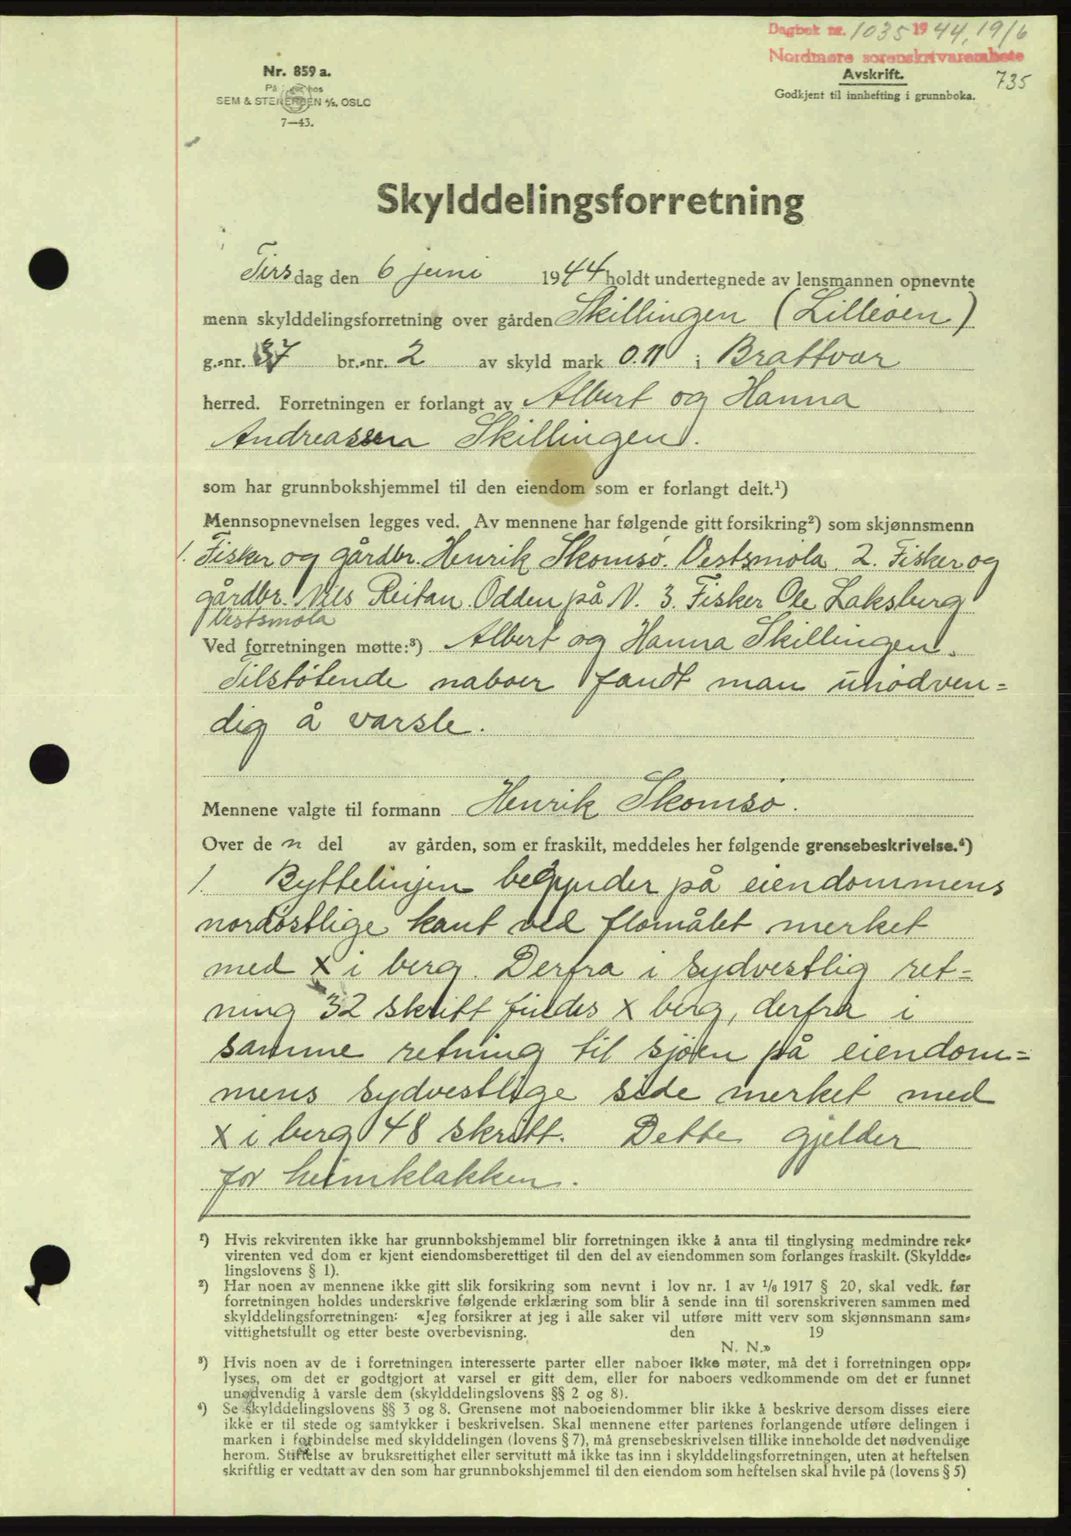 Dagbok nr. 1035 1944, 19/6
Nordmøre sorenskriverembete
735
Nr. 859 a.
På lager hos
SEM & STENERSEN A/S, OSLO
7—43.
Avskrift.
Godkjent til innhefting i grunnboka.
Skylddelingsforretning
Tirsdag den 6 juni 1944 holdt undertegnede av lensmannen opnevnte
menn skylddelingsforretning over gården Skillingen (Lilleøen)
g.-nr. 37 br.-nr. 2 av skyld mark 0.11 i Brattvær
herred. Forretningen er forlangt av Albert og Hanna
Andreassen Skillingen.
som har grunnbokshjemmel til den eiendom som er forlangt delt.¹)
Mennsopnevnelsen legges ved. Av mennene har følgende gitt forsikring²) som skjønnsmenn
1. Fisker og gårdbr. Henrik Skomsø. Vestsmøla. 2. Fisker og
gårdbr. Nils Reitan Odden på V. 3. Fisker Ole Laksberg
Vestsmøla
Ved forretningen møtte:³) Albert og Hanna Skillingen.
Tilstøtende naboer fandt man unødven=
dig å varsle.
Mennene valgte til formann Henrik Skomsø.
Over den del av gården, som er fraskilt, meddeles her følgende grensebeskrivelse.⁴)
1. Byttelinjen begynder på eiendommens
nordøstlige kant ved flomålet merket
med x i berg. Derfra i sydvestlig ret=
ning 32 skritt findes x berg, derfra i
samme retning til sjøen på eiendom=
mens sydvestlige side merket med
x i berg 48 skritt. Dette gjelder
for heimklakken.
¹) Hvis rekvirenten ikke har grunnbokshjemmel blir forretningen ikke å anta til tinglysing medmindre rek-
virenten ved dom er kjent eiendomsberettiget til den del av eiendommen som forlanges fraskilt. (Skyldde-
lingslovens § 1).
²) Har noen av mennene ikke gitt slik forsikring som nevnt i lov nr. 1 av 1/6 1917 § 20, skal vedk. før
forretningen holdes underskrive følgende erklæring som blir å sende inn til sorenskriveren sammen med
skylddelingsforretningen: «Jeg forsikrer at jeg i alle saker vil utføre mitt verv som skjønnsmann sam-
vittighetsfullt og etter beste overbevisning. den 19
N. N.»
³) Hvis noen av de i forretningen interesserte parter eller naboer ikke møter, må det i forretningen opp-
lyses, om det er godtgjort at varsel er gitt dem, eller for naboers vedkommende om det er funnet
unødvendig å varsle dem (skylddelingslovens §§ 2 og 8).
⁴) Se skylddelingslovens §§ 3 og 8. Grensene mot naboeiendommer blir ikke å beskrive dersom disses eiere
ikke er til stede og samtykker i beskrivelsen. Skal mennene etter partenes forlangende utføre delingen i
marken i forbindelse med skylddelingen (lovens § 7), må grensebeskrivelsen tillike inneholde det nødvendige
herom. Stiftelse av bruksrettighet eller servitutt må ikke tas inn i skylddelingsforretningen, uten at heftelsen
skriftlig er vedtatt av den som har grunnbokshjemmel til den eiendom som heftelsen skal hvile på (lovens § 5)